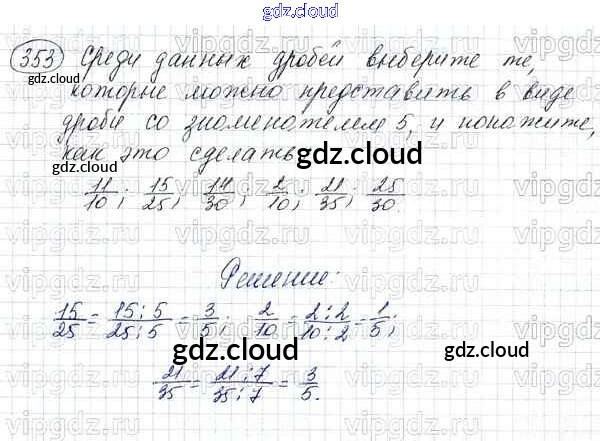 gdz.cloud
353 Среди данных дробей выберите те,
gdz.cloud gdz.cloud
которые можно представить в виде
дроби со знаменателем 5, и покажите,
как это сделать
gdz.cloud
11/10; 15/25; 14/30; 2/10; 21/35; 25/30.
Решение:
15/25 = 15:5/25:5 = 3/5; 2/10 = 2:2/10:2 = 1/5;
gdz.cloud gdz.cloud
21/35 = 21:7/35:7 = 3/5.
gdz.cloud
vipgdz.ru